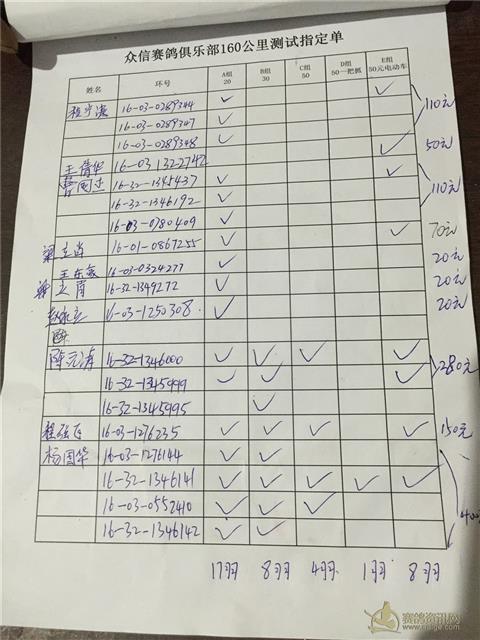 众信赛鸽俱乐部160公里测试指定单
姓名 环号 A组 20 B组 30 C组 50 D组 50一把抓 E组 50元电动车
16-03-0289344 ✓ ✓
16-03-0289347 ✓ 110元
16-03-0289348 ✓
王倩华 16-03-1322742 ✓ 50元
16-32-1345437 ✓ ✓
16-32-1346192 ✓ 110元
16-03-0780409 ✓
梁立肖 16-01-0867255 ✓ ✓ 70元
王东敏 16-03-0324277 ✓ 20元
16-32-1349272 ✓ 20元
16-03-1250308 ✓ 20元
陈元海 16-32-1346000 ✓ ✓ ✓ ✓
16-32-1345999 ✓ ✓ ✓ 280元
16-32-1345995 ✓
程强飞 16-03-1276235 ✓ ✓ ✓ ✓ 150元
杨国华 16-03-1276144 ✓ ✓
16-32-1346141 ✓ ✓ ✓ ✓ ✓
16-03-0552410 ✓ ✓ ✓
16-32-1346142 ✓ ✓
17羽 8羽 4羽 1羽 8羽
赛鸽资讯网